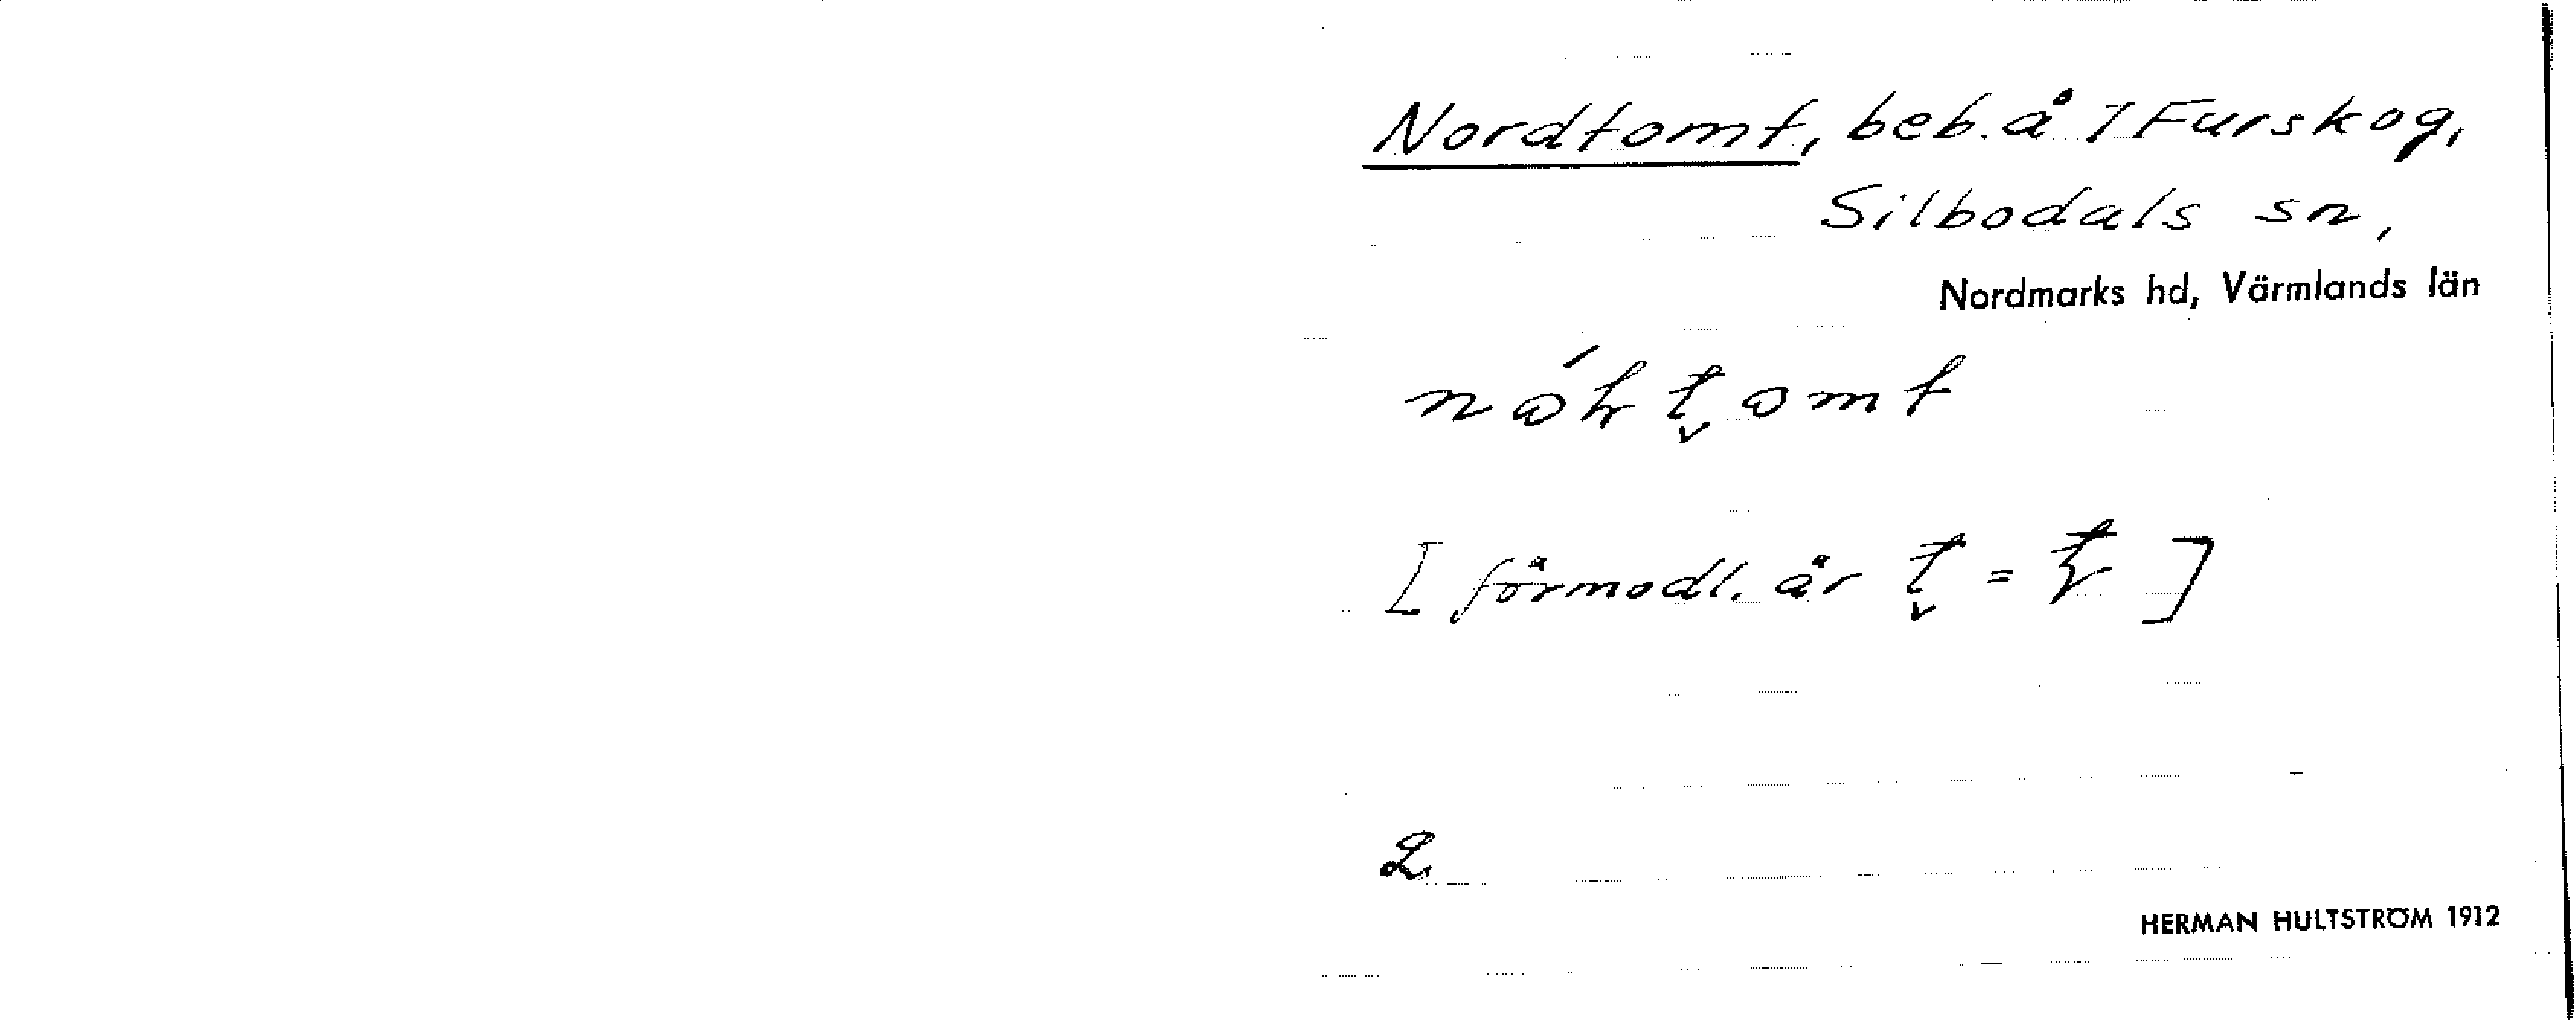 Nordtomt, beb. å 7 Furskog,
Silbodals sn,
Nordmarks hd, Värmlands län
[förmodl. är
2
HERMAN HULTSTRÖM 1912